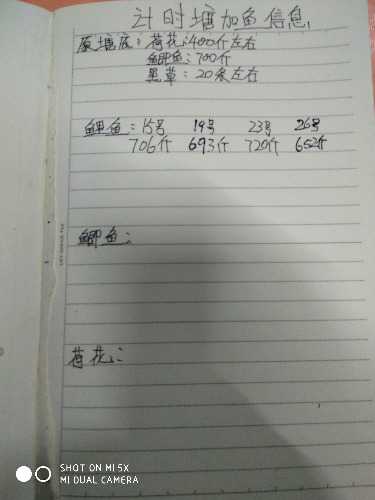 计时塘加鱼信息
原塘底：荷花：400斤左右
鲫鱼：700斤
黑草：20条左右
鲤鱼：15号 19号 23号 26号
706斤 693斤 729斤 652斤
鲫鱼：
荷花：
SHOT ON MI 5X
MI DUAL CAMERA